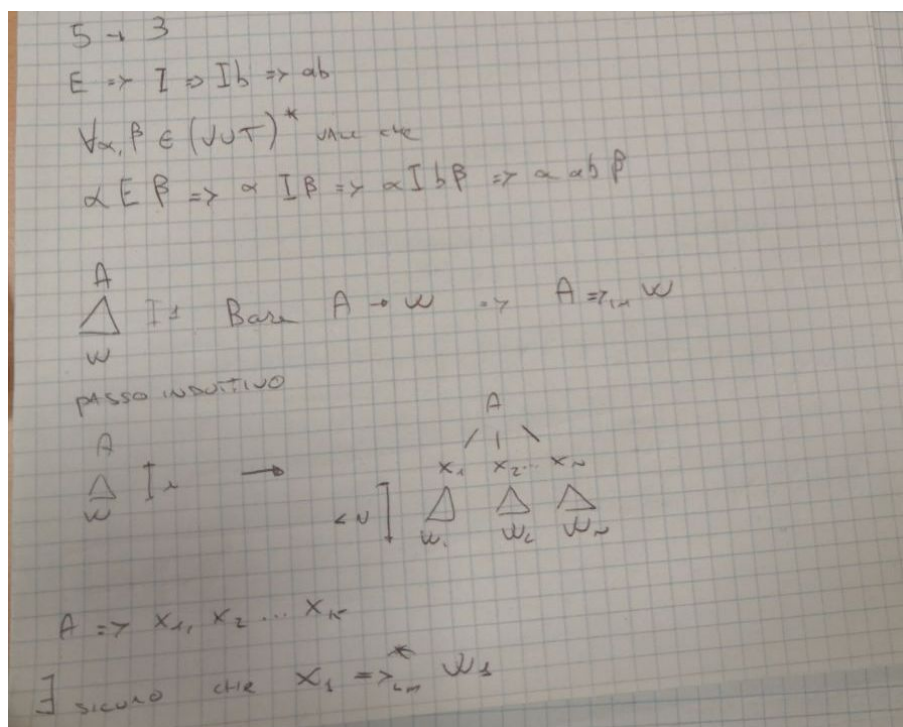 5 → 3
E => I => Ib => ab
∀α, β ∈ (V∪T)* vale che
α E β => α I β => α I b β => α ab β
A
w
I 1 Base A → w => A =>lm w
PASSO INDUTTIVO
A
A
x1 x2... xn
w
→
< n
w1 w2 wn
A => x1, x2 ... xk
∃ sicuro che x1 =>*lm w1